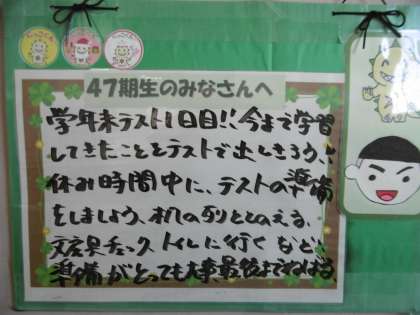 47期生のみなさんへ
学年末テスト1日目!!今まで学習
してきたことをテストで出しきろう!
休み時間中に、テストの準備
をしましょう。机の列をととのえる、
文房具チェック、トイレに行くなど!!
準備がとっても大事、最後までねばる。